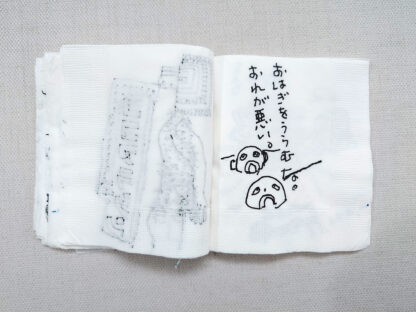 おはぎをううむな。
おれが悪い。